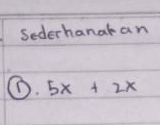 Sederhanakan
①. 5x + 2x